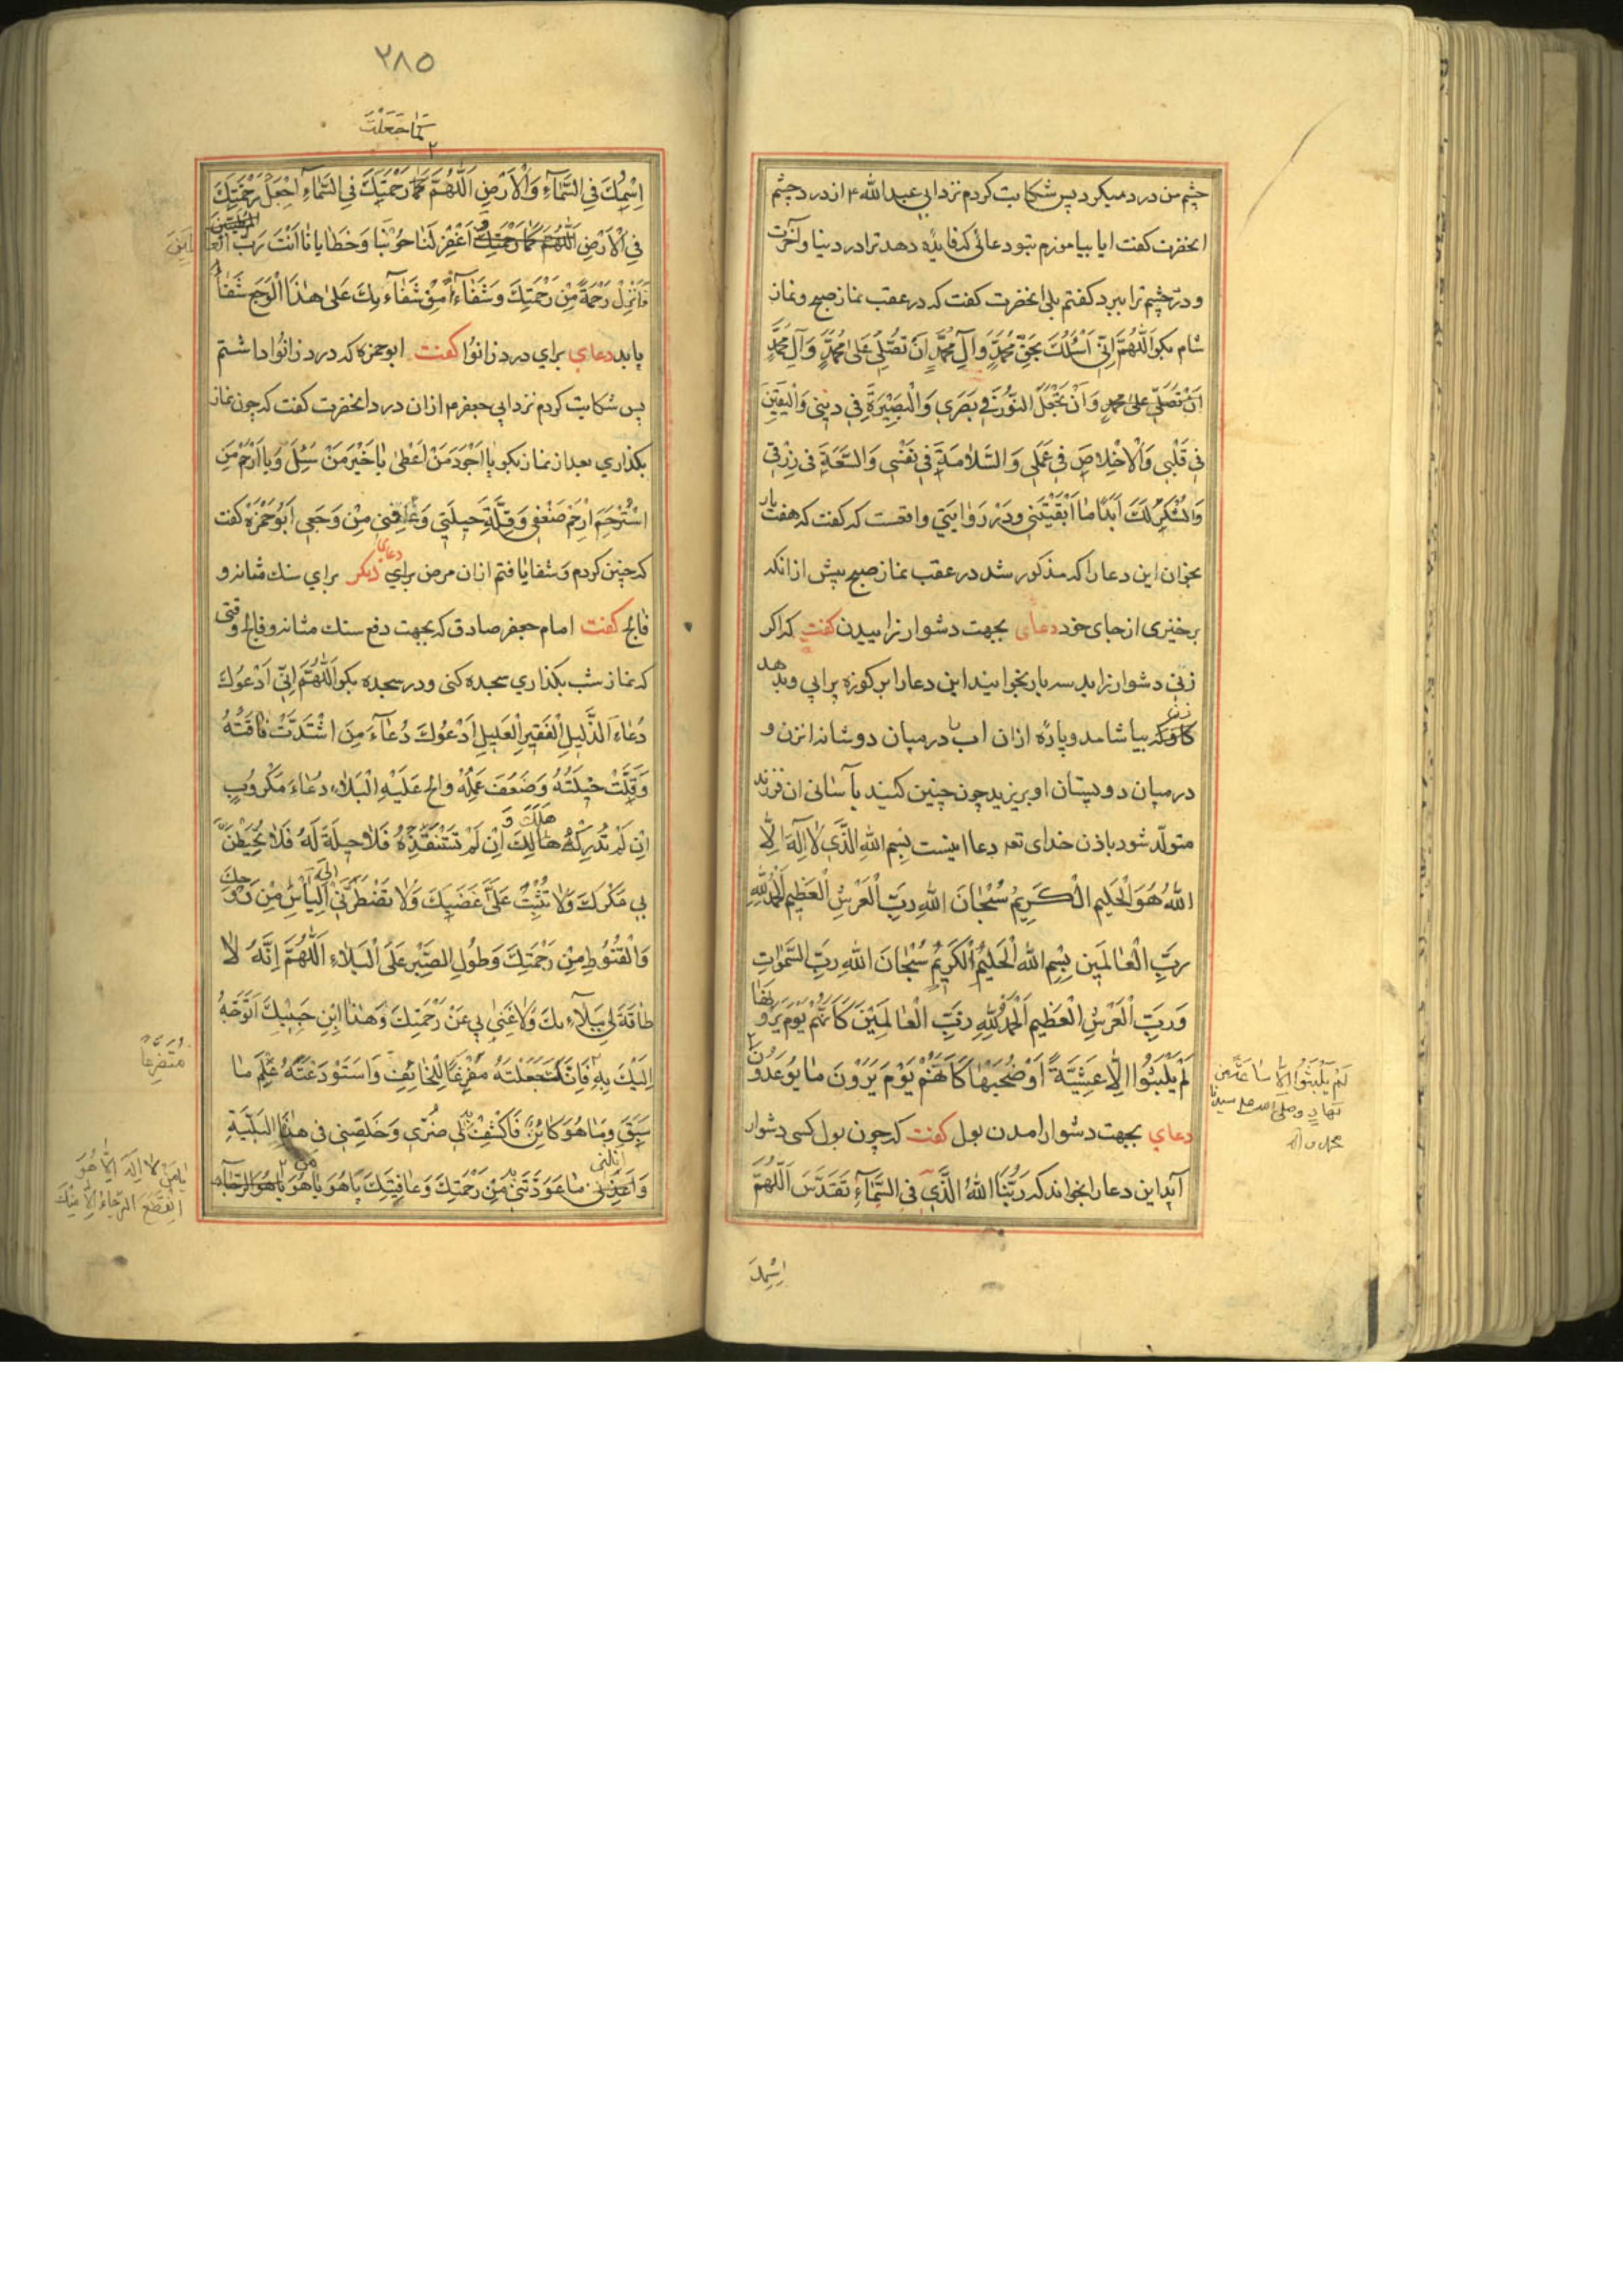 چشم من درد میکرد پس شکایت کردم نزد ابی عبد الله ۴ از درد چشم
انحضرت کفت ایا بیاموزم بتو دعائی که فایده دهد ترا در دنیا و آخرت
و درد چشم ترا ببرد کفتم بلی انحضرت کفت که در عقب نماز صبح و نماز
شام بکو اَللّٰهُمَّ اِنّی اَسْئَلُكَ بِحَقِّ مُحَمَّدٍ وَآلِ مُحَمَّدٍ اَنْ تُصَلِّیَ عَلیٰ مُحَمَّدٍ وَ آلِ مُحَمَّدٍ
اَنْ تُصَلِّیَ عَلیٰ محمدٍ وَ اَنْ تَجْعَلَ النّوُرَ فی بَصَری وَ الْبَصیْرَةَ فِی دینی وَالْیَقینَ
فی قَلْبی وَالْاِخْلاصَ فی عَمَلی وَ السَّلامَةَ فی نَفْسی وَ السَّعَةَ فی رِزْقی
وَالشُّکْرَ لَكَ اَبَدًا مٰا اَبْقَیْتَنی و در روایتی واقعست که کفت که هفت بار
بخوان این دعا را که مذکور شد در عقب نماز صبح پیش از انکه
برخیزی از جای خود دعای بجهت دشوار زاییدن کفت که اکر
زنی دشوار زاید سه بار بخوانید این دعا را بر کوزه پر ابی و بدهد
زن که بیاشامد و پارهٔ ازان اب در میان دو شانه ان زن و
در میان دو پستان او بریزید چون چنین کنید بآسانی ان فرزند
متولّد شود باذن خدای تعه دعا اینست بِسْمِ اللهِ الَّذی لٰا اِلٰهَ اِلَّا
اللهُ هُوَ الْحَلیم الْکَریمُ سُبْحٰانَ اللهِ رَبِّ الْعَرْشِ الْعَظیمِ اَلْحَمْدُ لِلّٰهِ
رَبِّ الْعٰالَمینَ بِسْمِ اللهِ الْحَلیمُ الْکَریمُ سُبْحٰانَ اللهِ رَبِّ السَّمٰوٰاتِ
وَ رَبِّ الْعَرْشِ الْعَظیمِ اَلْحَمْدُ لِلّٰهِ رَبِّ الْعٰالَمِیْنَ کَاَنَّهُمْ یَوْمَ یَرَوْنَهٰا
لَمْ یَلْبَثُوا اِلّٰا عَشِیَّةً اَوْ ضُحیٰهٰا کَاَنَّهُمْ یَوْمَ یَرَوْنَ مٰا یُوعَدُونَ
دعای بجهت دشوار امدن بول کفت که چون بول کسی دشوار
آید این دعا را بخواند که رَبُّنَا اللهُ الَّذی فِی السَّمٰآءِ تَقَدَّسَ اَللّٰهُمَّ
اِسْمِكَ
لَمْ یَلْبَثُوا اِلّٰا سٰاعَةً مِن
نَهٰارٍ و صلی الله علی سیدنا
محمد و اله
۲۸۵
کَمٰا جَعَلْتَ
اِسْمُكَ فِی السَّمٰآءِ وَالْاَرْضِ اَللّٰهُمَّ کَمٰا رَحْمَتِكَ فِی السَّمٰآءِ اِجْعَلْ رَحْمَتَكَ
فِی الْاَرْضِ اَللّٰهُمَّ کَمٰا رَحْمَتِكَ اَغْفِرْ لَنٰا حَوْبَنٰا وَ خَطٰایٰانٰا اَنْتَ رَبُّ الْعٰالَمِیْنَ
فَاَنْزِلْ رَحْمَةً مِنْ رَحْمَتِكَ وَ شَفٰآءً مِنْ شَفٰآءِكَ عَلیٰ هٰذَا الْوَجَعِ شفا
یابد دعای برای درد زانوا کفت ابو حمزه که درد زانوا داشتم
پس شکایت کردم نزد ابی جعفر م ازان درد انحضرت کفت که چون نماز
بکذاری بعد از نماز بکو یٰا اَجْوَدَ مَنْ اَعْطیٰ یٰا خَیْرَ مَنْ سُئِلَ وَ یٰا اَرْحَمَ مَنِ
اسْتُرْحِمَ اِرْحَمْ ضَعْفی وَ قِلَّةَ حیلَتی وَ عٰافِنی مِنْ وَجَعی اَبُو حَمْزَه کفت
که چنین کردم و شفا یافتم ازان مرض دعای دیکر برای سنك مثانه و
فالج کفت امام جعفر صادق که بجهت دفع سنك مثانه و فالج وقتی
که نماز شب بکذاری سجده کنی و در سجده بکو اَللّٰهُمَّ اِنّی اَدْعُوكَ
دُعٰاءَ الذَّلیلِ الْفَقیرِ الْعَلیلِ اَدْعُوكَ دُعٰآءَ مَنِ اشْتَدَّتْ فٰاقَتُهُ
وَ قَلَّتْ حیلَتُهُ وَ ضَعُفَ عَمَلُهُ وَ الح عَلَیْهِ الْبَلٰاء دُعٰاءَ مَکْرُوبٍ
اِنْ لَمْ تُدْرِکْهُ هَلَكَ وَ اِنْ لَمْ تَسْتَنْقِذْهُ فَلٰا حیلَةَ لَهُ فَلٰا یُحیطَنَّ
بی مَکْرُكَ وَلٰا تُثْبِتْ عَلَیَّ غَضَبَكَ وَلٰا تَضْطَرَّنی اِلَی الْیَأْسِ مِنْ رَوْحِكَ
وَ الْقُنُوطِ مِنْ رَحْمَتِكَ وَ طُولِ الصَّبْرِ عَلَی الْبَلٰاءِ اَللّٰهُمَّ اِنَّهُ لٰا
طٰاقَةَ لی بِبَلٰآءِكَ وَلٰا غِنیٰ بی عَنْ رَحْمَتِكَ وَ هٰذَا ابْنِ حَبیبِكَ اَتَوَجَّهُ
اِلَیْكَ بِهِ فَاِنَّكَ جَعَلْتَهُ مَفْزَعًا لِلْخٰائِفِ وَ اسْتَوْدَعْتَهُ عِلْمَ مٰا
سَبَقَ وَ مٰا هُوَ کٰائِنٌ فَاکْشِفْ لی ضُرّی وَ خَلِّصْنی فی هٰذِهِ الْبَلِیَّةِ
مٰا عَوَّدْتَنی مِنْ رَحْمَتِكَ وَ عٰافِیَتِكَ یٰا هُوَ یٰا هُوَ یٰا هُوَ
مُتَضَرِّعاً
یٰا مَنْ لٰا اِلٰهَ اِلّٰا هُوَ
انْقَطَعَ الرَّجٰاءُ اِلّٰا مِنْكَ